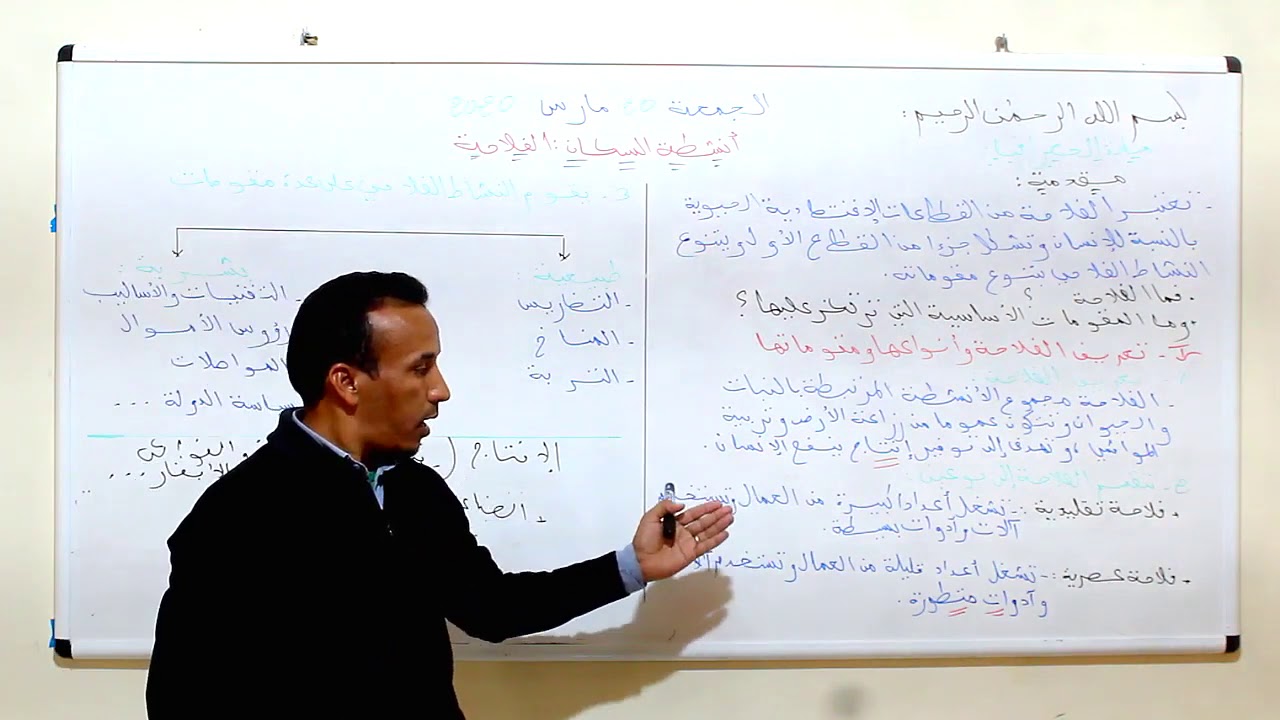 بسم الله الرحمن الرحيم:
الجمعة 20 مارس 2020
مادة الجغرافيا:
أنشطة السكان: الفلاحة
مقدمة:
- تعتبر الفلاحة من القطاعات الإقتصادية الحيوية
بالنسبة للإنسان وتشكل جزءا من القطاع الأول ويتنوع
النشاط الفلاحي بتنوع مقوماته.
• فما الفلاحة ؟
• وما المقومات الأساسية التي ترتكز عليها ؟
- تعريف الفلاحة وأنواعها ومقوماتها
تعريف الفلاحة
- الفلاحة مجموع الأنشطة المرتبطة بالنبات
والحيوان وتتكون عموما من زراعة الأرض وتربية
المواشي، وتهدف إلى توفير إنتاج ينفع الإنسان.
تنقسم الفلاحة إلى نوعين:
• فلاحة تقليدية :- تشغل أعدادا كبيرة من العمال وتستخدم
آلات وأدوات بسيطة.
• فلاحة عصرية :- تشغل أعداد قليلة من العمال وتستخدم
وأدوات متطورة.
3. يقوم النشاط الفلاحي على عدة مقومات
طبيعية:
- التضاريس
- المناخ
- التربة
بشرية:
- التقنيات والأساليب
رؤوس الأموال
المواصلات
سياسة الدولة ...
الإنتاج